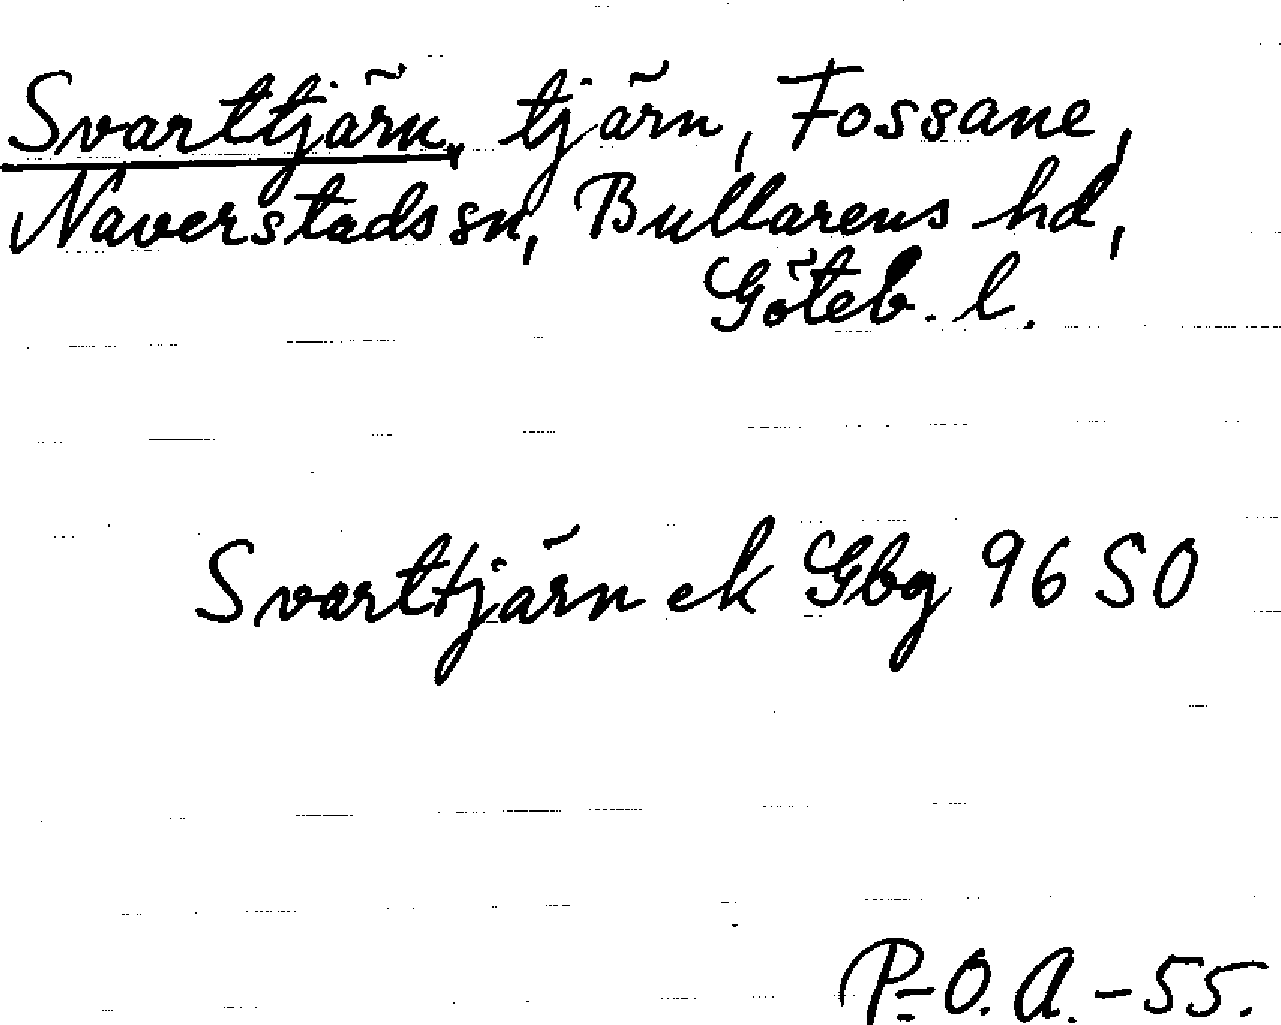 Svarttjärn, tjärn, Fossane,
Naverstads sn, Bullarens hd,
Göteb. l.
Svarttjärn ek Gbg 96 SO
P-O. A. -55.